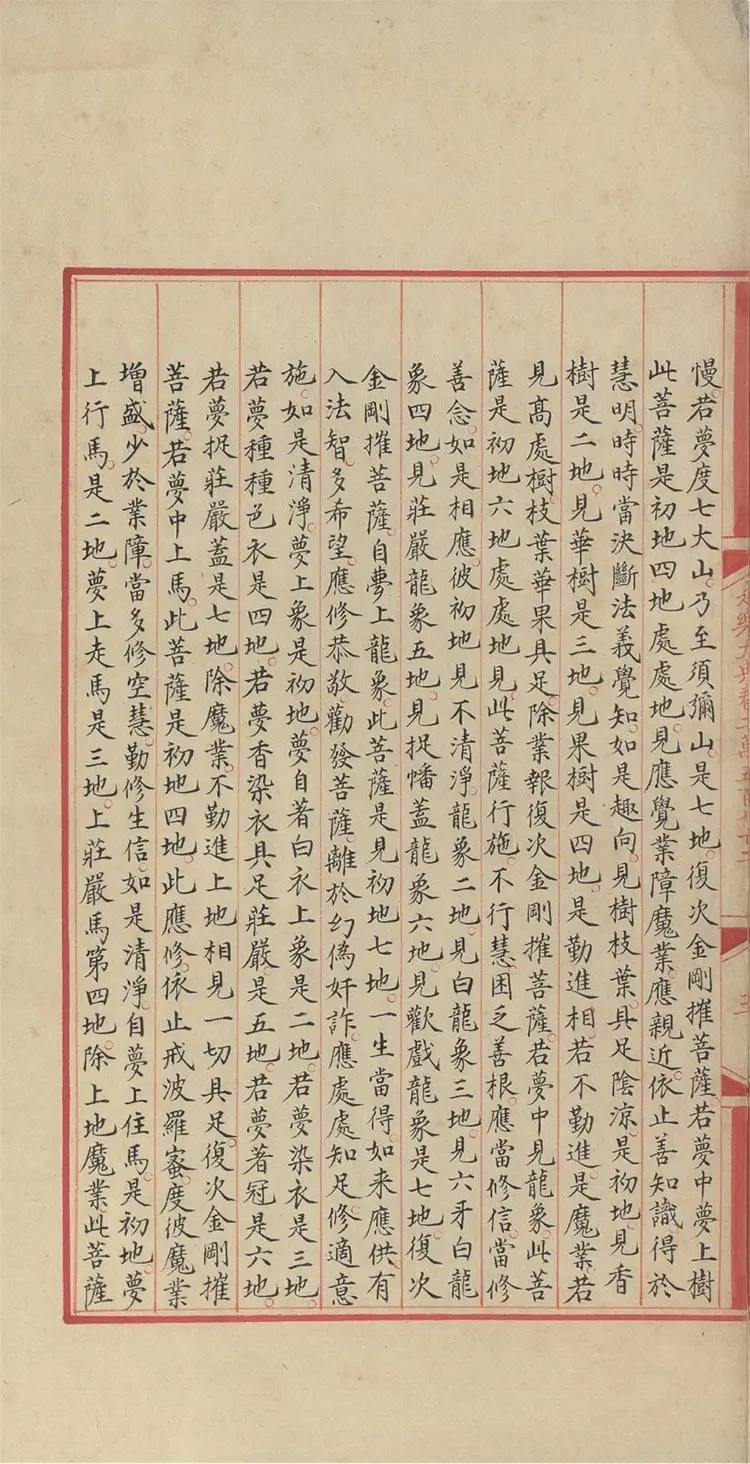 慢。若夢度七大山。乃至須彌山。是七地。復次金剛摧菩薩。若夢中夢上樹
此菩薩是初地四地處處地。見應覺業障魔業。應親近。依止善知識。得於
慧明。時時當決斷法義覺知。如是趣向。見樹枝葉。具足陰涼。是初地。見香
樹是二地。見華樹是三地。見果樹是四地。是勤進相。若不勤進。是魔業。若
見高處樹。枝葉華果具足。除業報復次金剛摧菩薩。若夢中見龍象。此菩
薩是初地六地處處地見。此菩薩行施。不行慧。困乏善根。應當修信。當修
善念。如是相應。彼初地見不清淨。龍象二地。見白龍象三地。見六牙白龍
象四地。見莊嚴龍象五地。見捉幡蓋龍象六地。見歡戲龍象是七地。復次
金剛摧菩薩。自夢上龍象。此菩薩是見初地七地。一生當得如来應供。有
入法智。多希望。應修恭敬。勸發菩薩。離於幻偽奸詐。應處處知足。修適意
施。如是清淨。夢上象是初地。夢自著白衣上象是二地。若夢染衣是三地
若夢種種色衣是四地。若夢香染衣具足莊嚴是五地。若夢著冠是六地。
若夢捉莊嚴蓋是七地。除魔業。不勤進上地相見一切具足。復次金剛摧
菩薩。若夢中上馬。此菩薩是初地四地。此應修。依止戒波羅蜜。度彼魔業
增盛。少於業障。當多修空慧。勤修生信。如是清淨。自夢上住馬。是初地。夢
上行馬。是二地。夢上走馬是三地。上莊嚴馬第四地。除上地魔業。此菩薩
永樂大典卷二萬
三